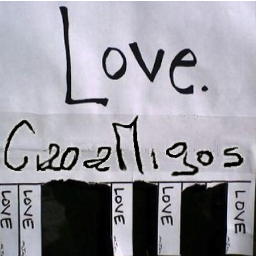 Love.
C202Migos
LOVE
LOVE
LOVE
LOVE
LOVE